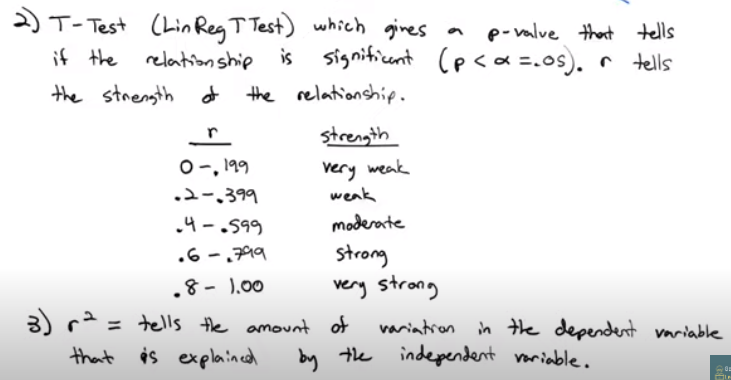 2) T-Test (LinRegTTest) which gives a p-value that tells
if the relationship is significant (p < α = .05). r tells
the strength of the relationship.
r strength
0 - .199 very weak
.2 - .399 weak
.4 - .599 moderate
.6 - .799 strong
.8 - 1.00 very strong
3) r² = tells the amount of variation in the dependent variable
that is explained by the independent variable.